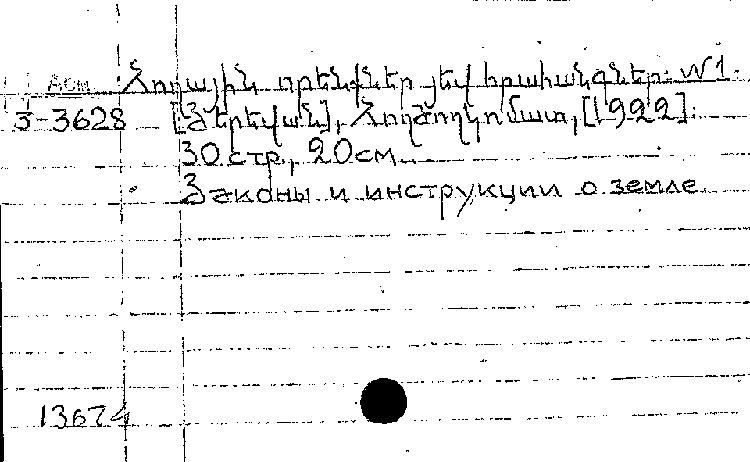 Арм Հողային որենքներ յեվ հրահանգներ: N1.
3-3628 [Յերեվան], Հողժողկոմատ, [1922].
30 стр., 20 см.
Законы и инструкции о земле
13674